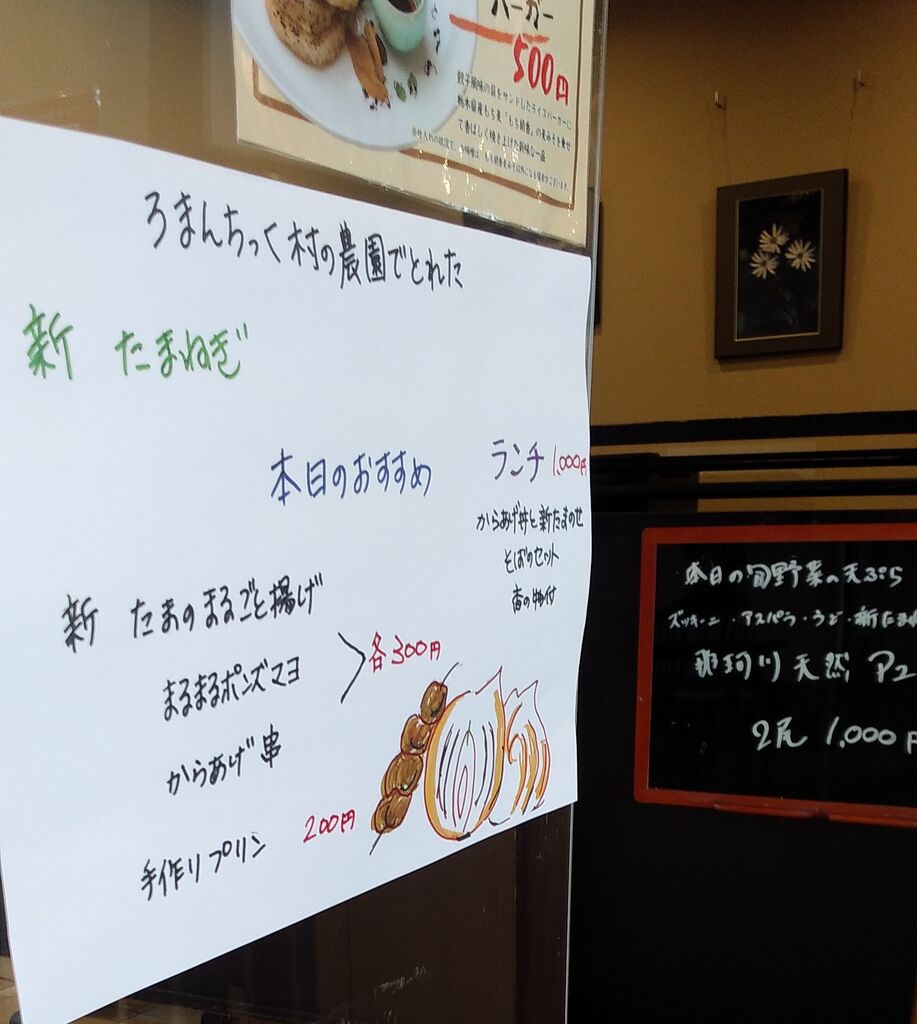 バーガー
500円
餃子風味の具をサンドしたライスバーガーに
栃木県産もち麦「もち絹香」の麦みそを乗せ
て香ばしく焼き上げた新味な一品
ろまんちっく村の農園でとれた
新 たまねぎ
本日のおすすめ
ランチ 1,000円
からあげ丼と新たまのせ
そばのセット
香の物付
新 たまのまるごと揚げ
まるまるポンズマヨ
各300円
からあげ串
手作りプリン 200円
本日の旬野菜の天ぷら
ズッキーニ・アスパラ・うど・新たま
那珂川 天然 アユ
2尾 1,000円